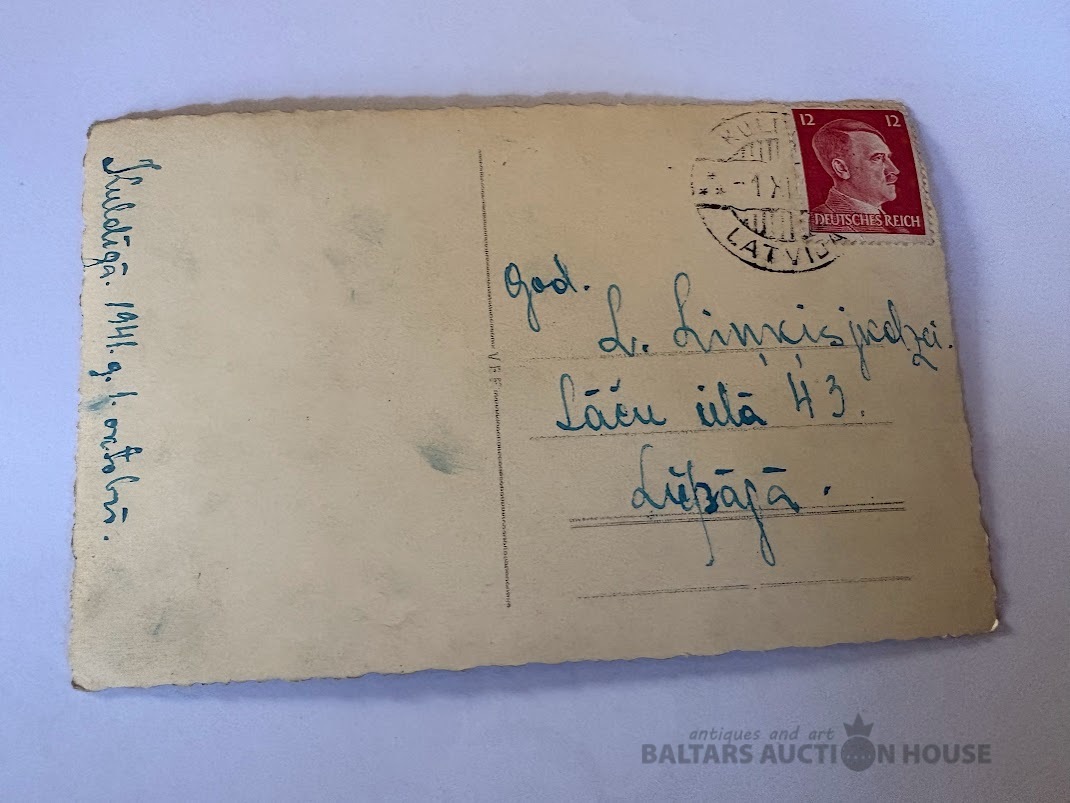 Kuldīgā. 1941. g. 1. oktobrī.
KULDĪ
- 1 XI
LATVIJA
12 12
DEUTSCHES REICH
God.
L.
Lāču ielā 43.
Liepājā.
VEF
antiques and art
BALTARS AUCTION HOUSE